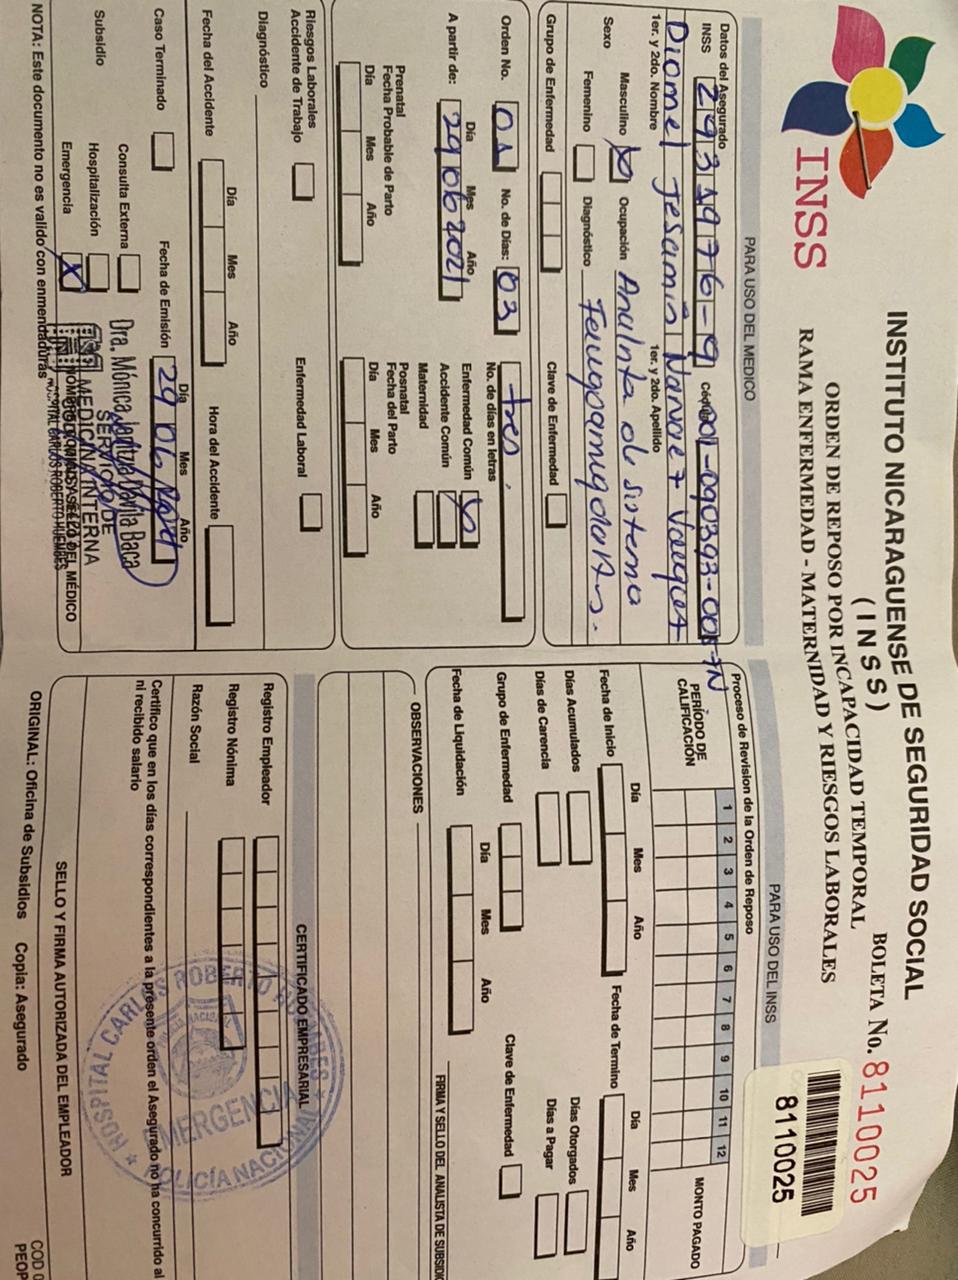 INSS
INSTITUTO NICARAGUENSE DE SEGURIDAD SOCIAL
( I N S S )
ORDEN DE REPOSO POR INCAPACIDAD TEMPORAL
RAMA ENFERMEDAD - MATERNIDAD Y RIESGOS LABORALES
BOLETA No. 8110025
8110025
PARA USO DEL MEDICO
Datos del Asegurado
INSS 29319776-9 001-090393-00
1er. y 2do. Nombre 1er. y 2do. Apellido
Sexo Masculino X Ocupación Analista de sistema
Femenino Diagnóstico
Grupo de Enfermedad Clave de Enfermedad
Orden No. 01 No. de Días: 03 tres
No. de días en letras
Día Mes Año
A partir de: 29 06 2021
Enfermedad Común X
Accidente Común
Maternidad
Prenatal
Fecha Probable de Parto
Día Mes Año
Posnatal
Fecha del Parto
Día Mes Año
Riesgos Laborales
Accidente de Trabajo Enfermedad Laboral
Diagnóstico
Día Mes Año
Fecha del Accidente Hora del Accidente
Día Mes Año
Caso Terminado Fecha de Emisión 29 06
Subsidio Consulta Externa
Hospitalización
Emergencia X
Dra. Mónica Dávila Baca
SERVICIO DE
MEDICINA INTERNA
HOSPITAL CARLOS ROBERTO HUEMBES
NOTA: Este documento no es valido con enmendaduras
PARA USO DEL INSS
Proceso de Revision de la Orden de Reposo
PERÍODO DE
CALIFICACIÓN
1 2 3 4 5 6 7 8 9 10 11 12
MONTO PAGADO
Día Mes Año Día Mes Año
Fecha de Inicio Fecha de Termino
Días Acumulados Días Otorgados
Días de Carencia Días a Pagar
Grupo de Enfermedad Clave de Enfermedad
Día Mes Año
Fecha de Liquidación
FIRMA Y SELLO DEL ANALISTA DE SUBSIDIO
OBSERVACIONES
CERTIFICADO EMPRESARIAL
Registro Empleador
Registro Nómina
Razón Social
Certifico que en los días correspondientes a la presente orden el Asegurado no ha concurrido al
ni recibido salario
HOSPITAL CARLOS ROBERTO HUEMBES
EMERGENCIA
POLICÍA NACIONAL
SELLO Y FIRMA AUTORIZADA DEL EMPLEADOR
ORIGINAL: Oficina de Subsidios Copia: Asegurado